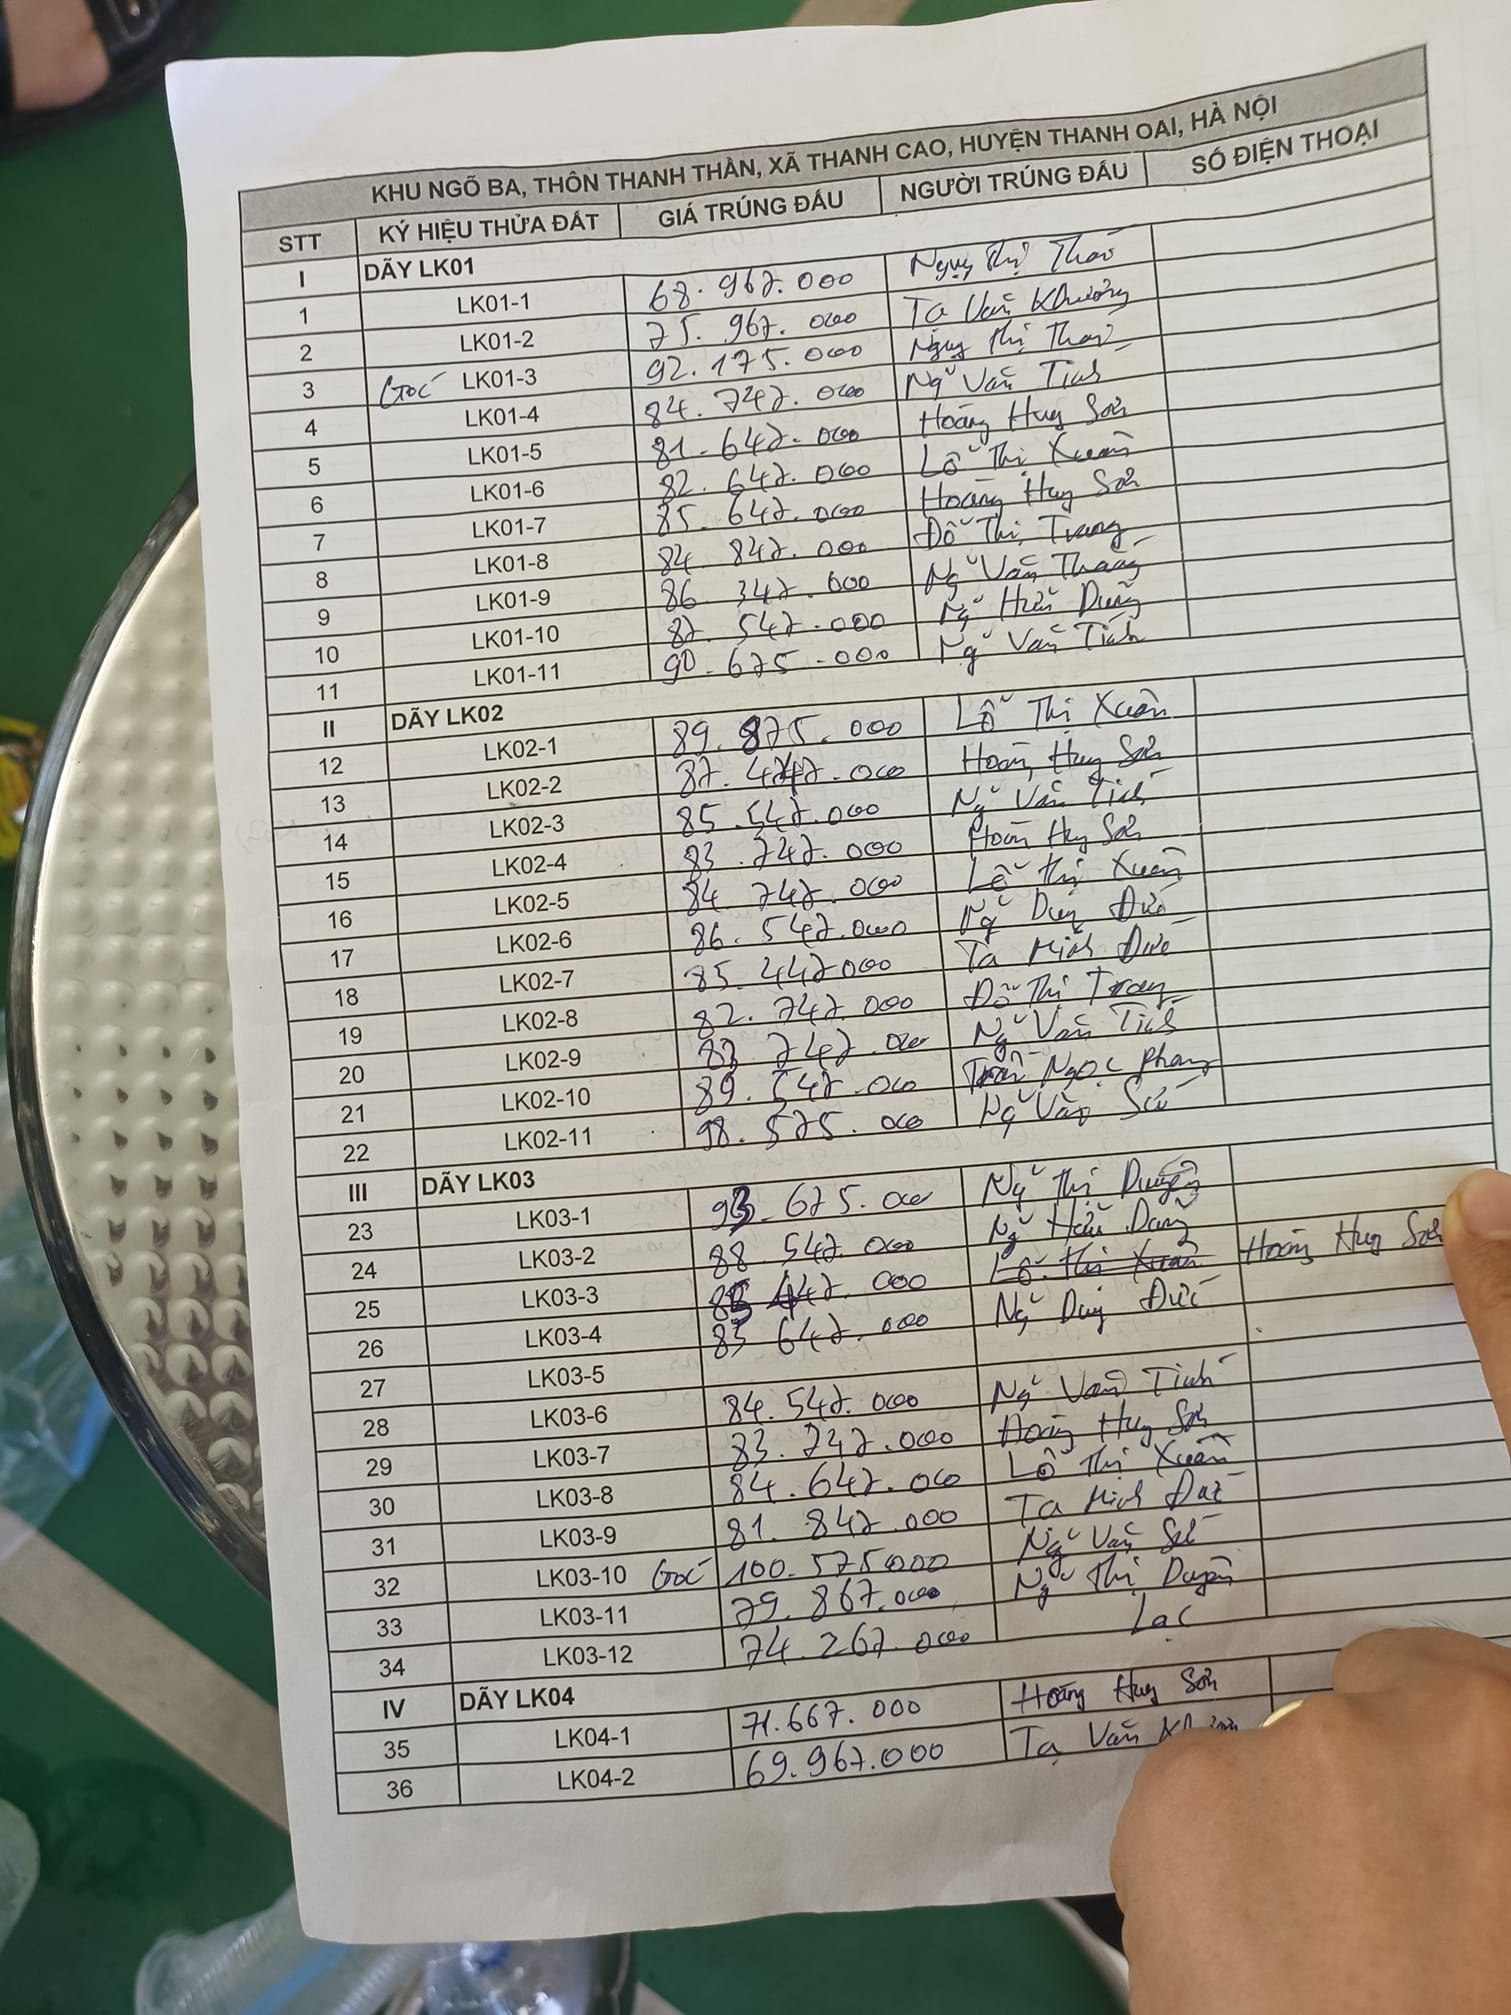 KHU NGÕ BA, THÔN THANH THẦN, XÃ THANH CAO, HUYỆN THANH OAI, HÀ NỘI
STT KÝ HIỆU THỬA ĐẤT GIÁ TRÚNG ĐẤU NGƯỜI TRÚNG ĐẤU SỐ ĐIỆN THOẠI
I DÃY LK01
1 LK01-1 68.967.000 Thị Thao
2 LK01-2 75.967.000 Tạ Văn Khương
3 Góc LK01-3 92.175.000 Thị Thao
4 LK01-4 84.747.000 Ng Văn Tính
5 LK01-5 81.647.000 Hoàng Huy Sơn
6 LK01-6 82.647.000 Lỗ Thị Xuân
7 LK01-7 85.647.000 Hoàng Huy Sơn
8 LK01-8 84 847.000 Đỗ Thị Trang
9 LK01-9 86 347.000 Ng Văn Thắng
10 LK01-10 87.547.000 Ng Hữu Dũng
11 LK01-11 90.675.000 Ng Văn Tính
II DÃY LK02
12 LK02-1 89.875.000 Lỗ Thị Xuân
13 LK02-2 87. .000 Hoàng Huy Sơn
14 LK02-3 85.547.000 Ng Văn Tính
15 LK02-4 83.747.000 Hoàng Huy Sơn
16 LK02-5 84.747.000 Lỗ Thị Xuân
17 LK02-6 86.547.000 Ng Duy Đức
18 LK02-7 85.447000 Tạ Minh Đức
19 LK02-8 82.747.000 Đỗ Thị Trang
20 LK02-9 83.747.000 Ng Văn Tính
21 LK02-10 89.547.000 Trần Ngọc Phong
22 LK02-11 98.575.000 Ng Văn
III DÃY LK03
23 LK03-1 93.675.000 Ng Thị Duyên
24 LK03-2 88.547.000 Ng Hữu Dũng
25 LK03-3 .000 Lỗ Thị Xuân Hoàng Huy Sơn
26 LK03-4 83 647.000 Ng Duy Đức
27 LK03-5
28 LK03-6 84.547.000 Ng Văn Tính
29 LK03-7 83.747.000 Hoàng Huy Sơn
30 LK03-8 84.647.000 Lỗ Thị Xuân
31 LK03-9 81.847.000 Tạ Minh Đức
32 LK03-10 Góc 100.575000 Ng Văn
33 LK03-11 79.867.000 Ng Thị Duyên
34 LK03-12 74.267.000 Lạc
IV DÃY LK04
35 LK04-1 71.667.000 Hoàng Huy Sơn
36 LK04-2 69.967.000 Tạ Văn